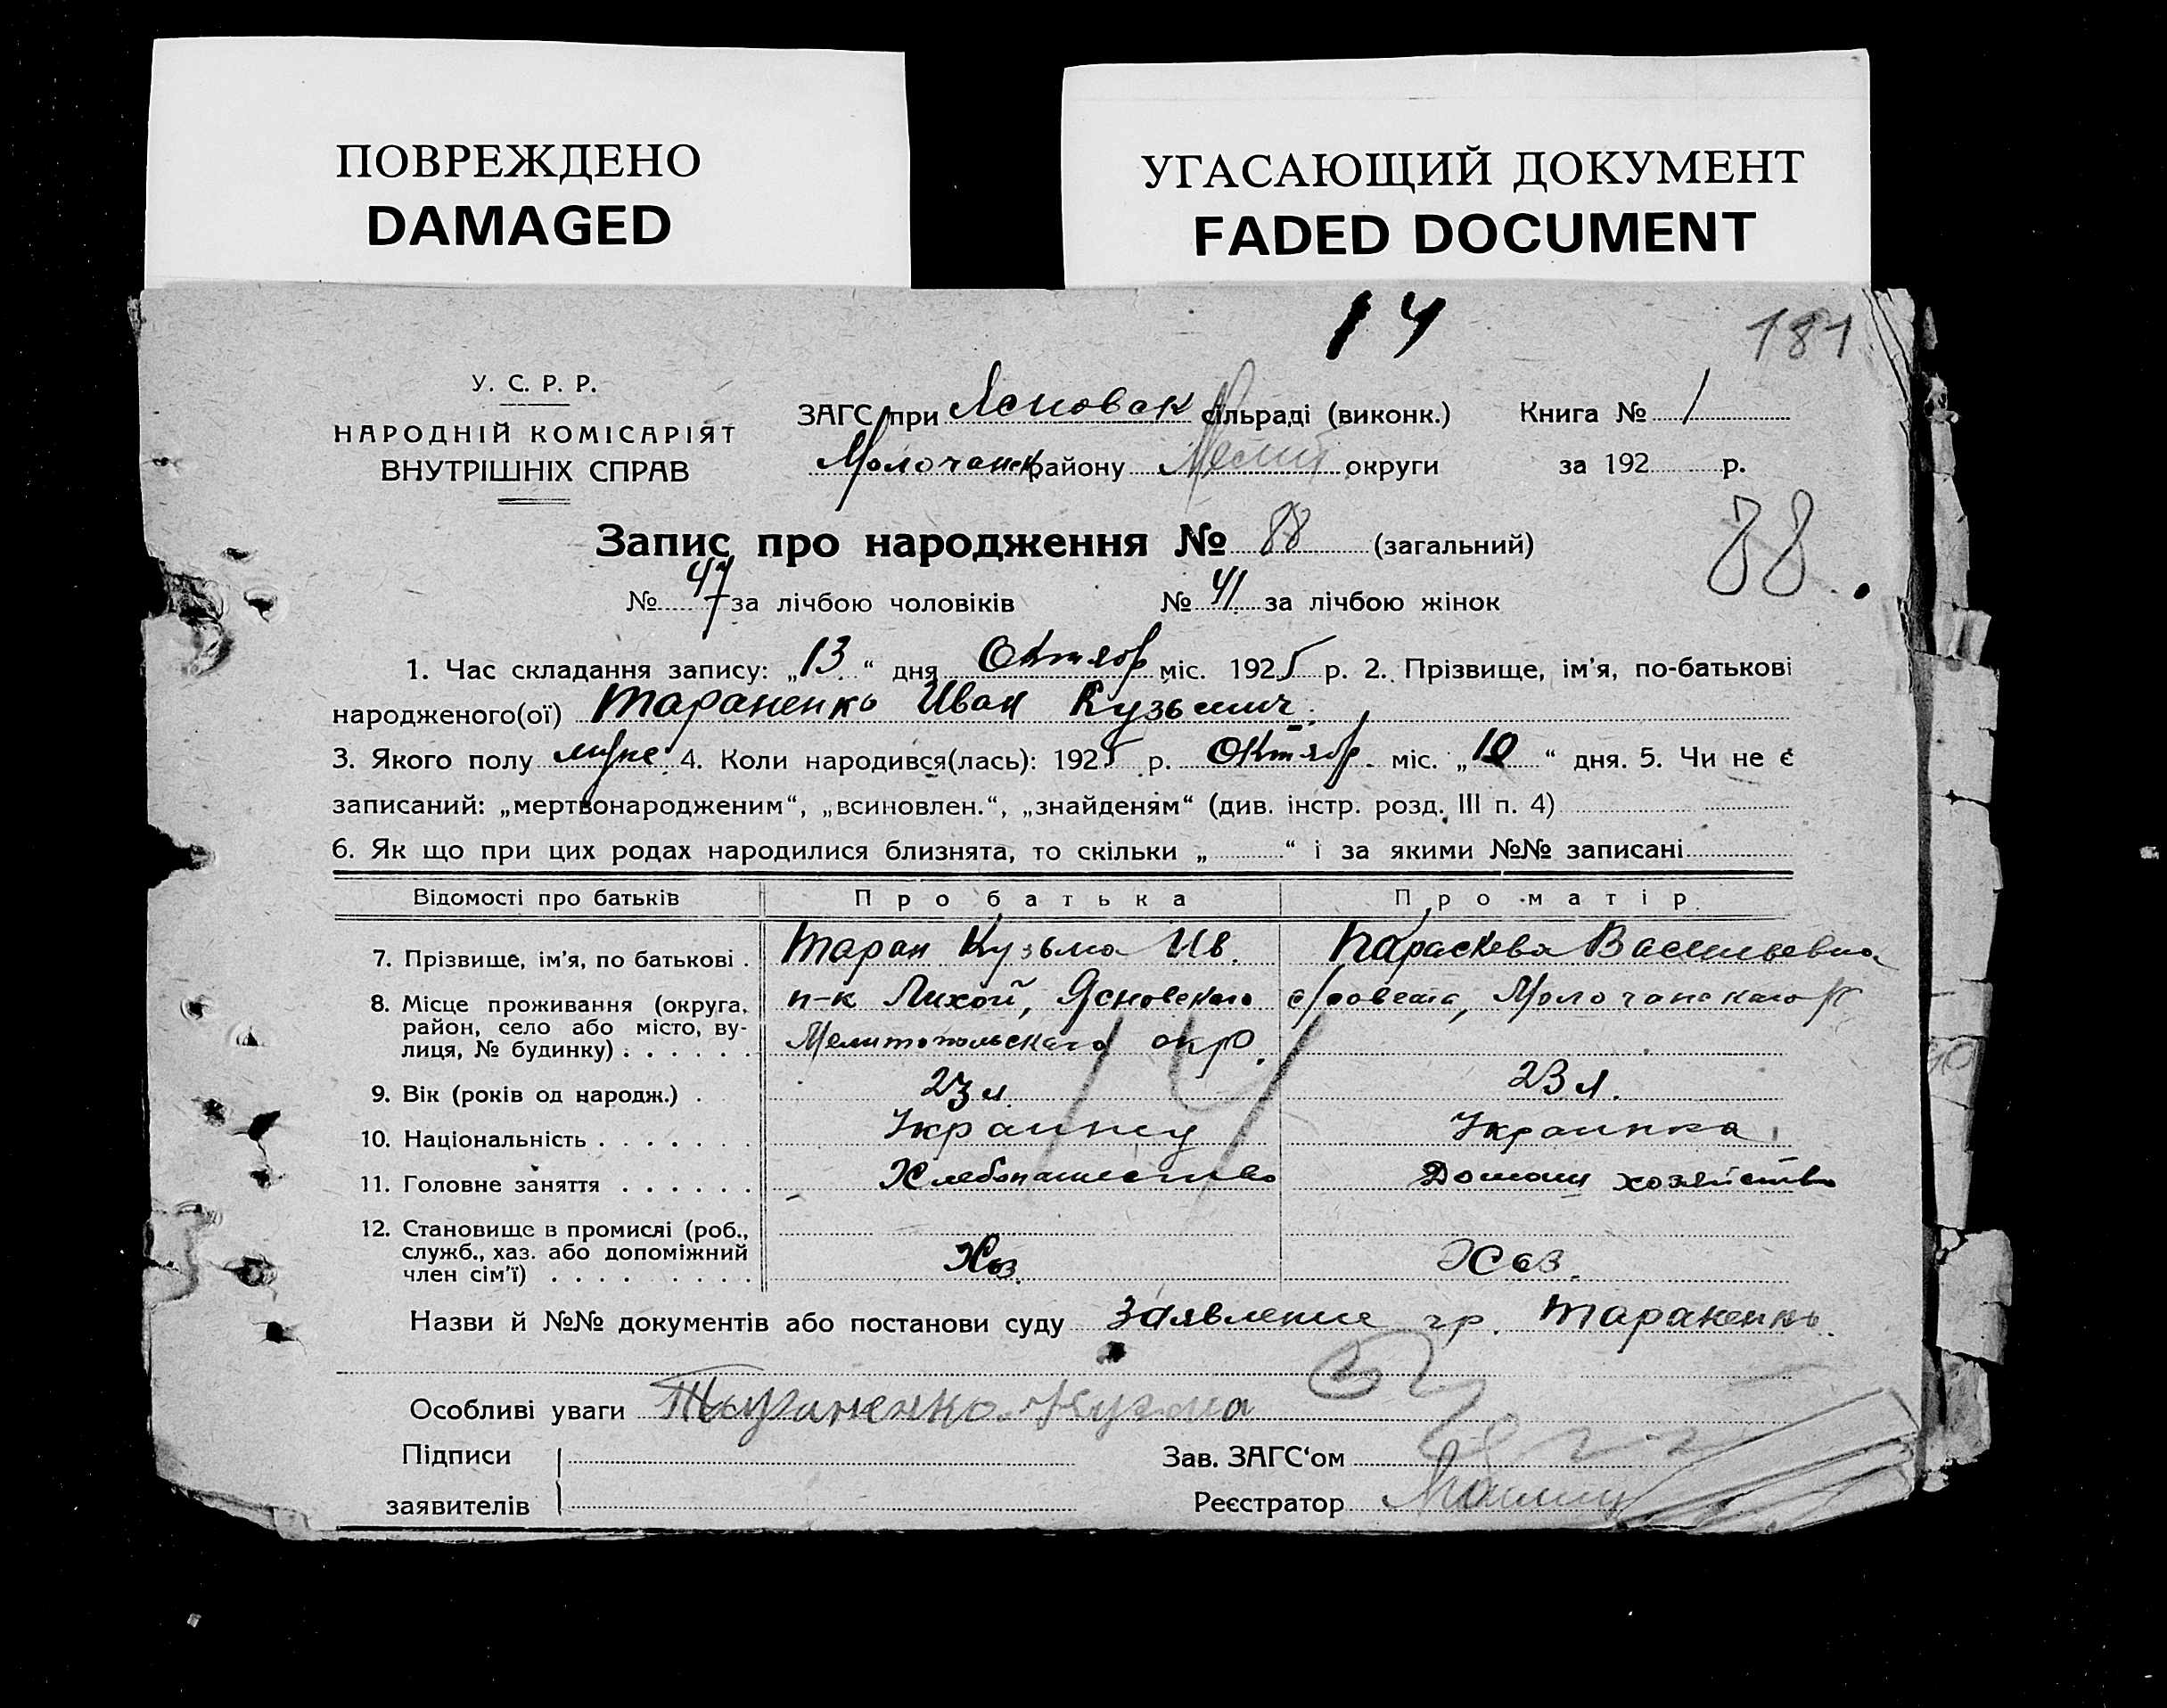 ПОВРЕЖДЕНО
DAMAGED
УГАСАЮЩИЙ ДОКУМЕНТ
FADED DOCUMENT
14
181
У. С. Р. Р.
НАРОДНІЙ КОМІСАРІЯТ
ВНУТРІШНІХ СПРАВ
ЗАГС при Ясновск сільраді (виконк.) Книга № 1
Молочанск району Мелит округи за 192 р.
Запис про народження № 88 (загальний)
88
№ 47 за лічбою чоловіків № 41 за лічбою жінок
1. Час складання запису: „13“ дня Октябр міс. 1925 р. 2. Прізвище, ім'я, по-батькові
народженого(ої) Тараненко Иван Кузьмич.
3. Якого полу муже 4. Коли народився(лась): 1925 р. Октябр. міс. „10“ дня. 5. Чи не є
записаний: „мертвонародженим“, „всиновлен.“, „знайденям“ (див. інстр. розд. III п. 4)
6. Як що при цих родах народилися близнята, то скільки „ “ і за якими №№ записані
Відомості про батьків Про батька Про матір
7. Прізвище, ім'я, по батькові . Таран Кузьма Ив. Параскева Васильевна
8. Місце проживання (округа, п-к Лихой, Ясновского с/совета, Молочанского р
район, село або місто, ву- Мелитопольского окр.
лиця, № будинку) . . . . . .
14
9. Вік (років од народж.) . 23 л. 23 л.
10. Національність . . . . . . . Украинец Украинка
11. Головне заняття . . . . . . Хлебопашество Домашн хозяйство
12. Становище в промислі (роб.,
служб., хаз. або допоміжний Хоз. Хоз.
член сім'ї) . . . . . . . . .
Назви й №№ документів або постанови суду Заявление гр. Тараненко.
Особливі уваги Тараненко Кузма
Підписи Зав. ЗАГС‘ом
заявителів Реєстратор